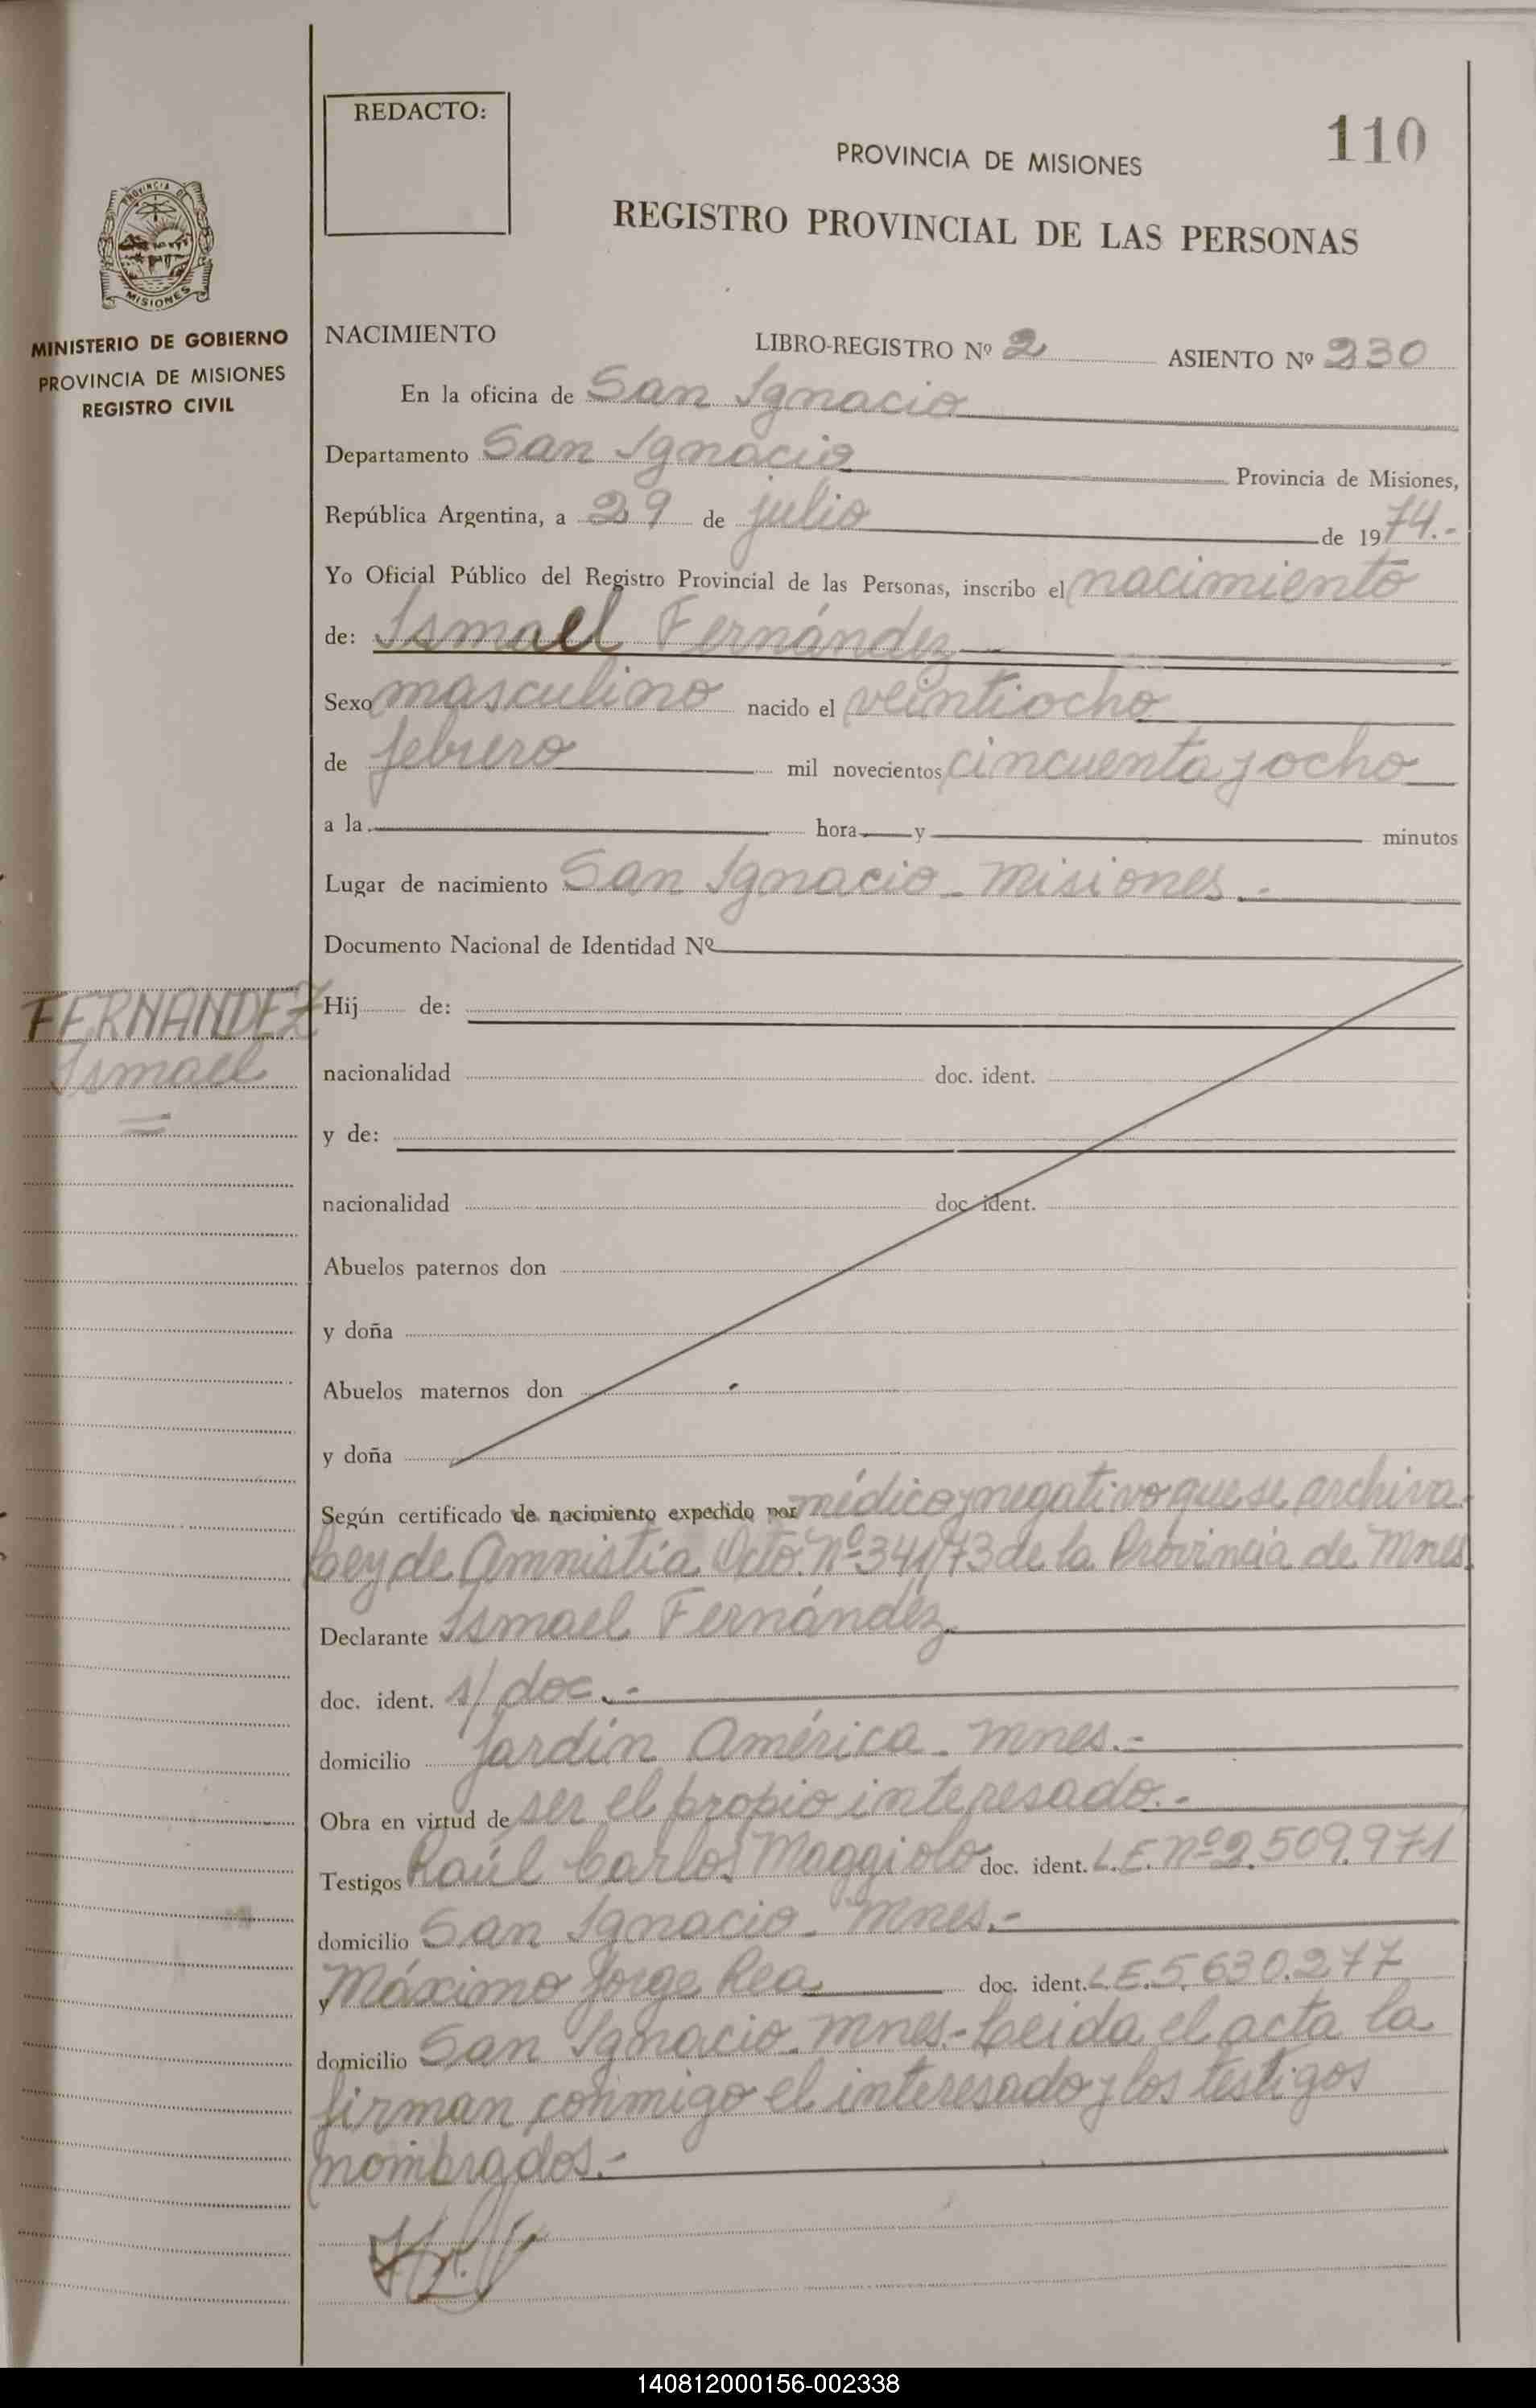 REDACTO:
110
PROVINCIA DE MISIONES
REGISTRO PROVINCIAL DE LAS PERSONAS
PROVINCIA DE
MISIONES
MINISTERIO DE GOBIERNO
PROVINCIA DE MISIONES
REGISTRO CIVIL
NACIMIENTO LIBRO-REGISTRO Nº 2 ASIENTO Nº 230
En la oficina de San Ignacio
Departamento San Ignacio Provincia de Misiones,
República Argentina, a 29 de julio de 1974.-
Yo Oficial Público del Registro Provincial de las Personas, inscribo el nacimiento
de: Ismael Fernández
Sexo masculino nacido el veintiocho
de febrero mil novecientos cincuenta y ocho
a la hora y minutos
Lugar de nacimiento San Ignacio - Misiones.-
Documento Nacional de Identidad Nº
FERNANDEZ
Ismael
Hij de:
nacionalidad doc. ident.
y de:
nacionalidad doc. ident.
Abuelos paternos don
y doña
Abuelos maternos don
y doña
Según certificado de nacimiento expedido por médico y negativo que se archiva.
Ley de Amnistía Dcto. Nº 341/73 de la Provincia de Mnes.
Declarante Ismael Fernández
doc. ident. s/ doc.-
domicilio Jardín América - Mnes.-
Obra en virtud de ser el propio interesado.-
Testigos Raúl Carlos Maggiolo doc. ident. L.E. nº 2.509.971
domicilio San Ignacio - Mnes.-
y Máximo Jorge Rea doc. ident. L.E. 5.630.277
domicilio San Ignacio - Mnes.- Leida el acta la
firman conmigo el interesado y los testigos
nombrados.-
140812000156-002338